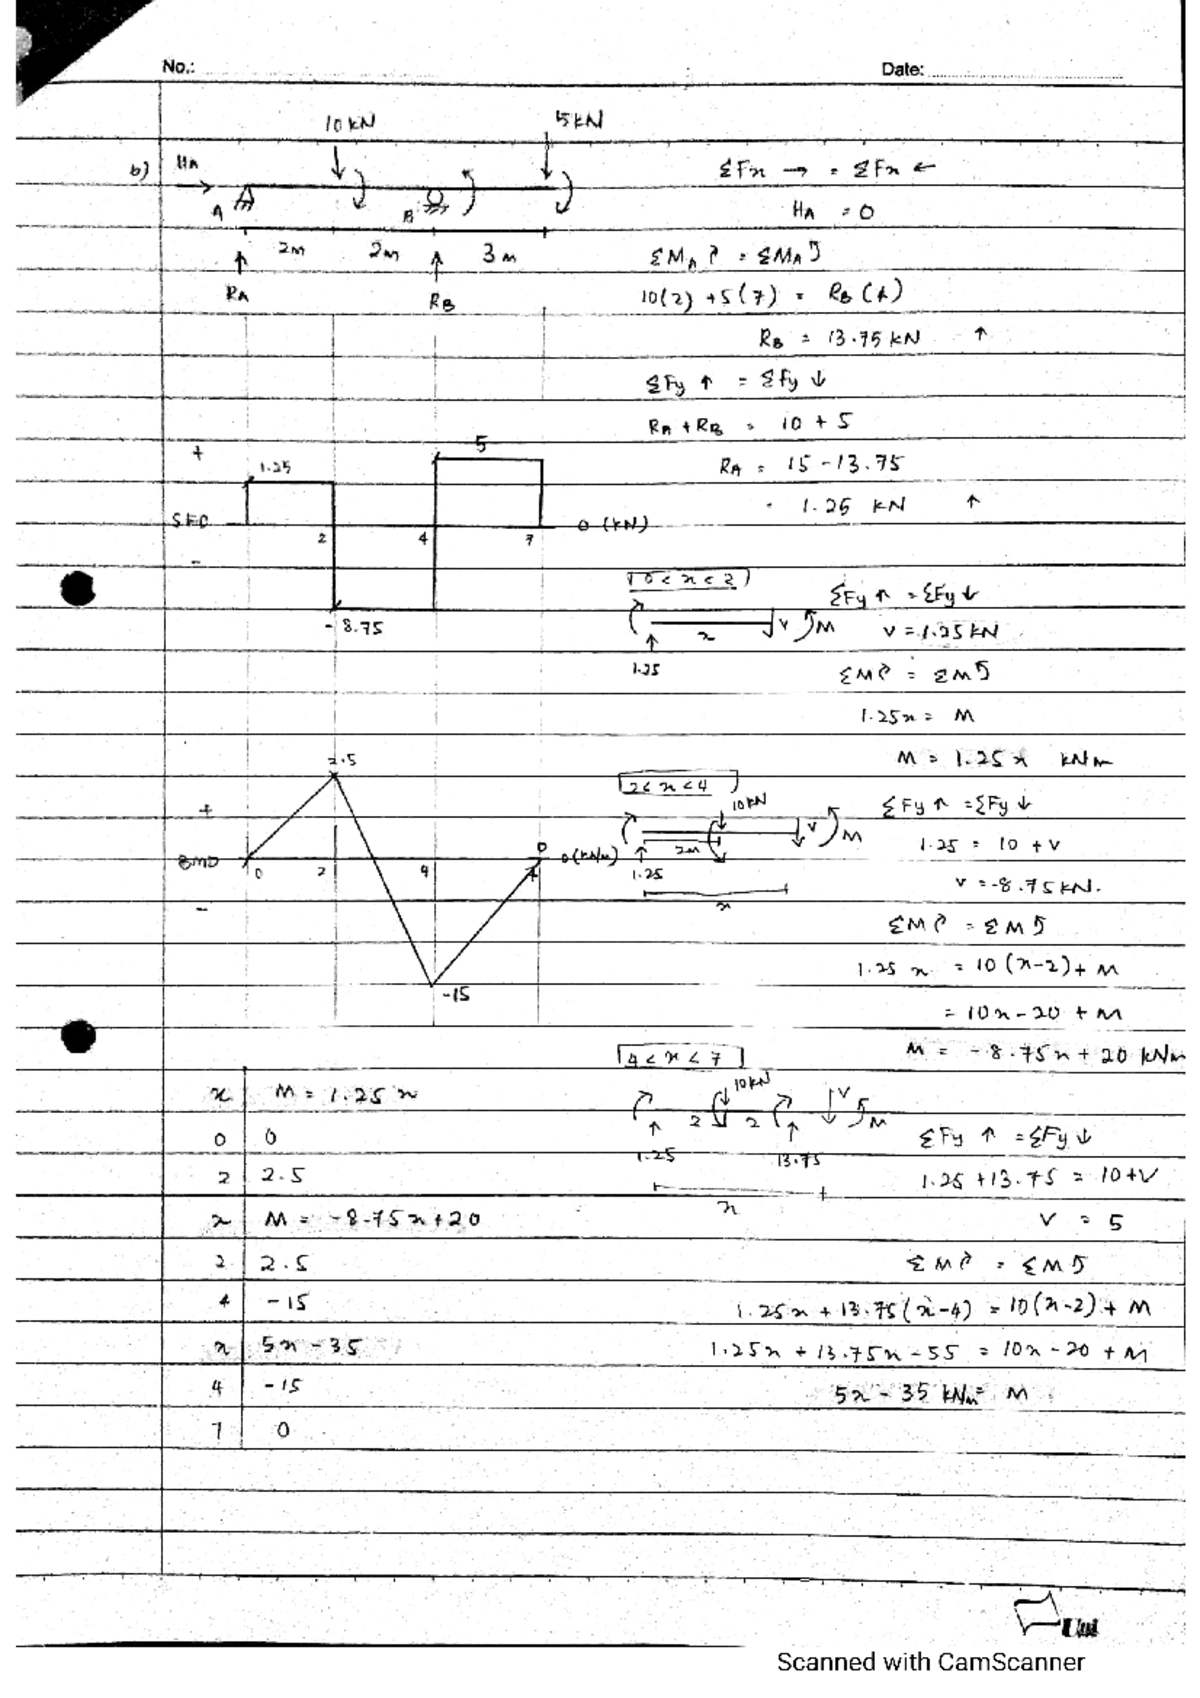 No.:
Date:
10 kN
5 kN
b)
HA
A
B
2m
2m
3m
RA
RB
ΣFx → = ΣFx ←
HA = 0
ΣMA ↻ = ΣMA ↺
10(2) + 5(7) = RB (4)
RB = 13.75 kN ↑
ΣFy ↑ = ΣFy ↓
RA + RB = 10 + 5
RA = 15 - 13.75
= 1.25 kN ↑
+
1.25
5
SFD
0 (kN)
2
4
7
-
-8.75
0 < x < 2
x
V
M
1.25
ΣFy ↑ = ΣFy ↓
V = 1.25 kN
ΣM ↻ = ΣM ↺
1.25x = M
M = 1.25x kNm
2.5
+
BMD
0
2
4
7
0
0 (kNm)
-
-15
2 < x < 4
10 kN
V
M
2m
1.25
x
ΣFy ↑ = ΣFy ↓
1.25 = 10 + V
V = -8.75 kN.
ΣM ↻ = ΣM ↺
1.25 x = 10(x-2) + M
= 10x - 20 + M
M = -8.75x + 20 kNm
4 < x < 7
10 kN
V
2
2
M
1.25
13.75
x
ΣFy ↑ = ΣFy ↓
1.25 + 13.75 = 10 + V
V = 5
ΣM ↻ = ΣM ↺
1.25x + 13.75(x-4) = 10(x-2) + M
1.25x + 13.75x - 55 = 10x - 20 + M
5x - 35 kNm = M
x M = 1.25 x
0 0
2 2.5
x M = -8.75x + 20
2 2.5
4 -15
x 5x - 35
4 -15
7 0
Scanned with CamScanner